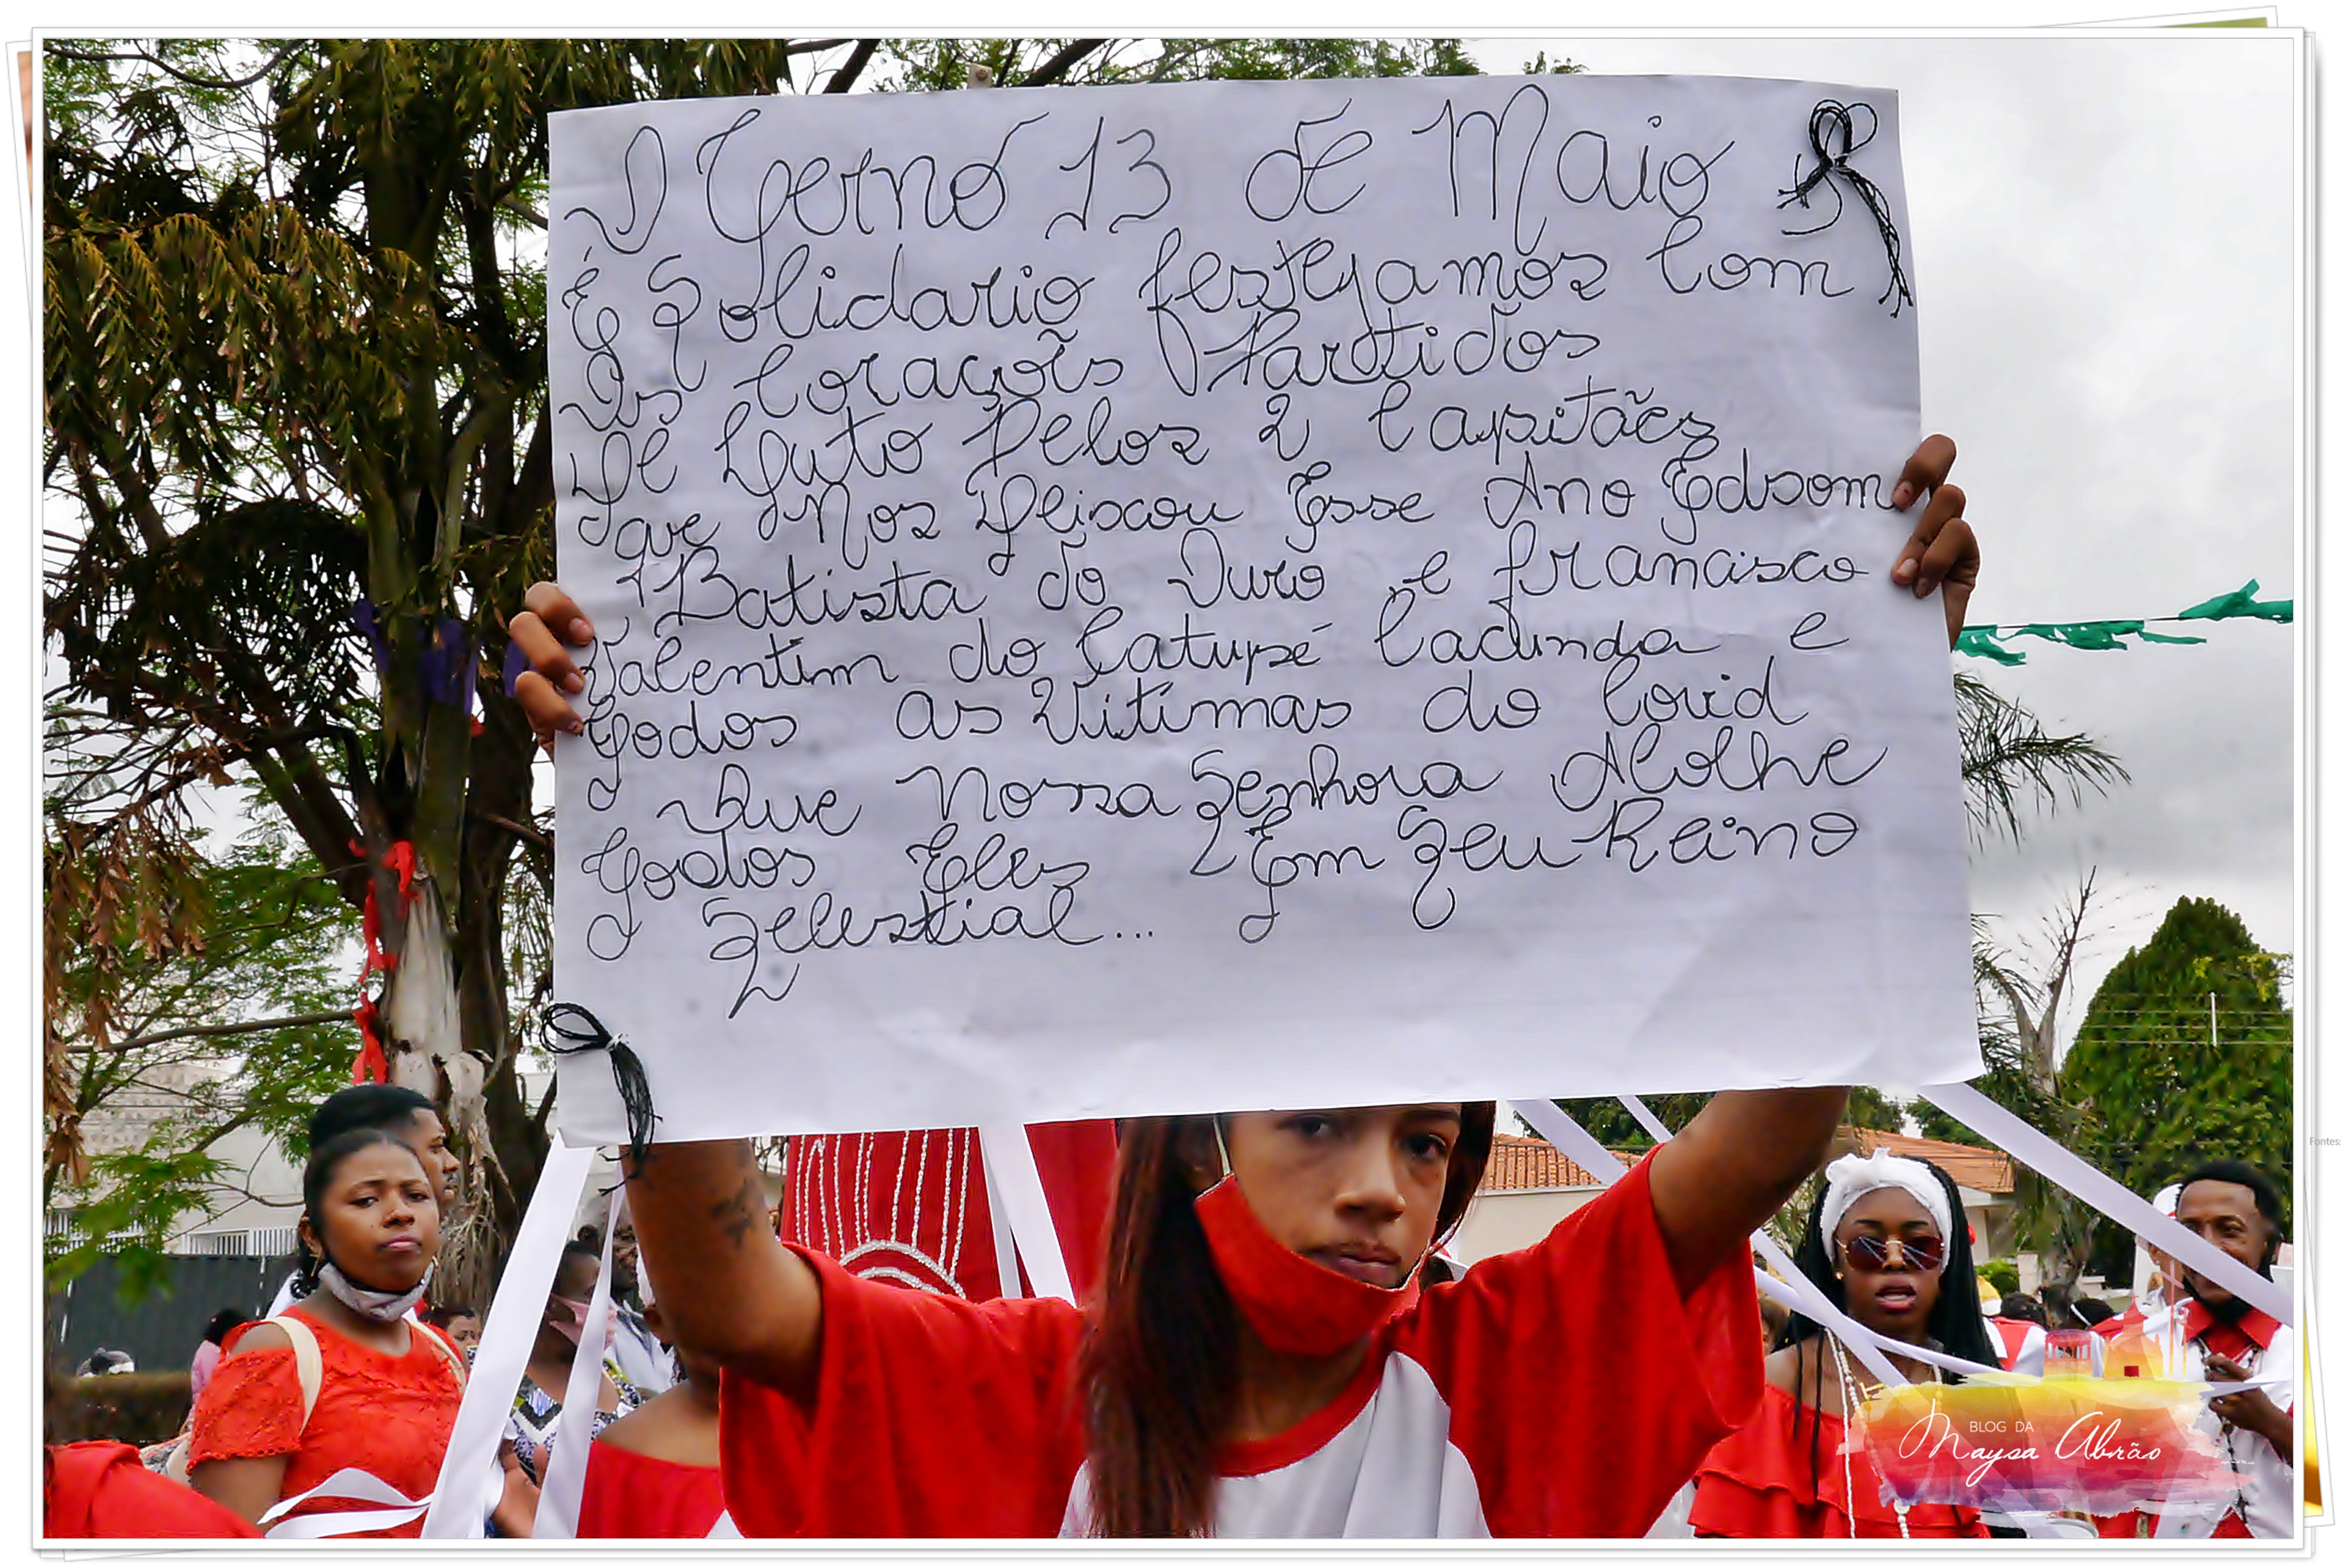 O Terno 13 de Maio
É Solidario festejamos Com
Os Coraçoẽs Partidos
De Luto Pelos 2 Capitães
que Nos Deixou Esse Ano Edsom
Batista do Ouro e francisco
Valentim do Catupé Cacunda e
Todos as Vitimas do Covid
Que Nossa Senhora Acolhe
Todos Eles Em Seu Reino
Selestial...
BLOG DA
Maysa Abrão
Fontes: